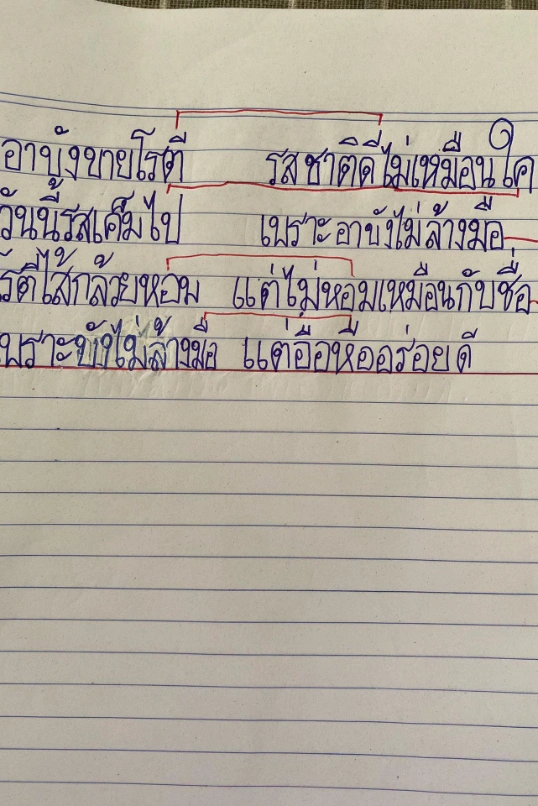 อาบังขายโรตี รสชาติดีไม่เหมือนใค
วันนี้รสเค็มไป เพราะอาบังไม่ล้างมือ
รตีไส้กล้วยหอม แต่ไม่หอมเหมือนกับชื่อ
พราะบังไม่ล้างมือ แต่อือหืออร่อยดี